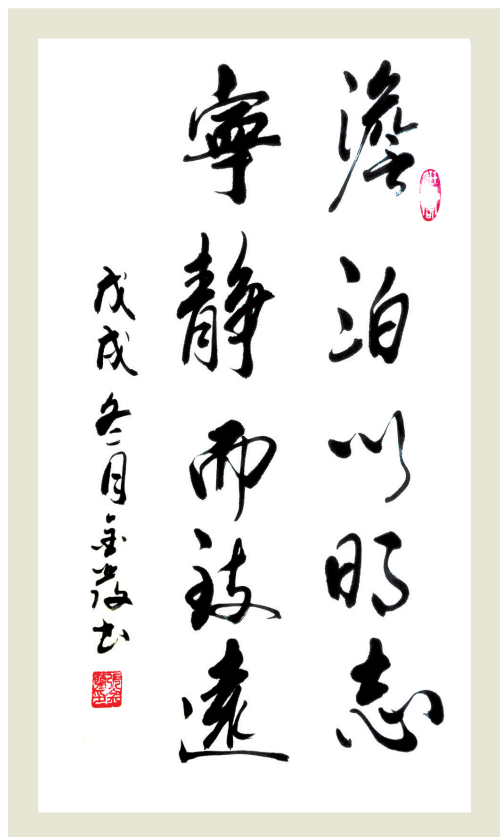 澹泊以明志
寧靜而致遠
戊戌冬月金發书